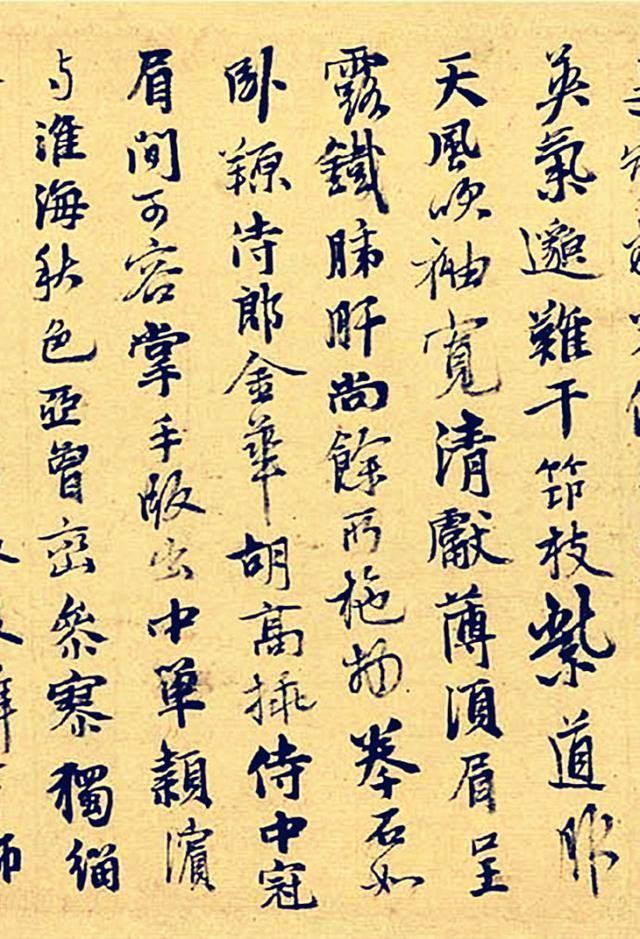 英氣邈難干筇枝紫道服
天風吹袖寬清獻薄須眉呈
露鐵肺肝尚餘所拖物拳石如
臥羱侍郎金華胡高插侍中冠
眉間可容掌手版出中單潁濱
与淮海秋色亞曾巒參寥獨緇